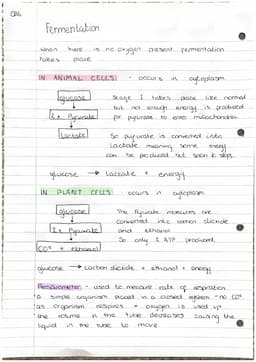 CB6
Fermentation
when there is no oxygen present fermentation
takes place
IN ANIMAL CELLS - occurs in cytoplasm
glucose
Stage 1 takes place like normal
but not enough energy is produced
for pyruvate to enter mitochondria
2x Pyruvate
Lactate
So pyruvate is converted into
Lactate meaning some energy
can be produced but soon it stops
glucose → Lactate + energy
IN PLANT CELLS - occurs in cytoplasm
glucose
The Pyruvate molecules are
converted into carbon dioxide
and ethanol
2x Pyruvate
So only 2 ATP produced
CO² + ethanol
glucose → carbon dioxide + ethanol + energy
Respirometer - used to measure rate of respiration
a simple organism placed in a closed system - no CO²
as organism respires → oxygen is used up
the volume in the tube decreases causing the
liquid in the tube to move